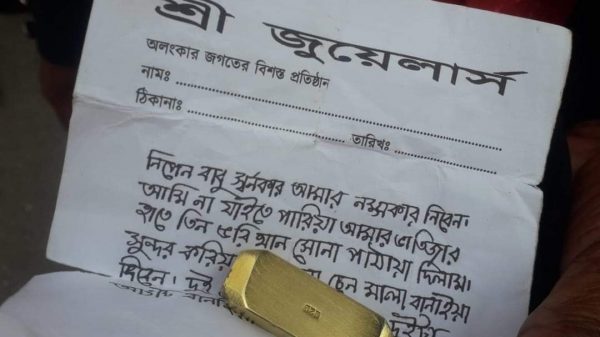 শ্রী জুয়েলার্স
অলংকার জগতের বিশ্বস্ত প্রতিষ্ঠান
নামঃ
ঠিকানাঃ
তারিখঃ
নিপেন বাবু স্বর্নকার আমার নমস্কার নিবেন।
আমি না যাইতে পারিয়া আমার
হাতে তিন ভরি আন সোনা পাঠায়া দিলাম।
সুন্দর করিয়া চেন মালা বানাইয়া
দিবেন।
দুইটা